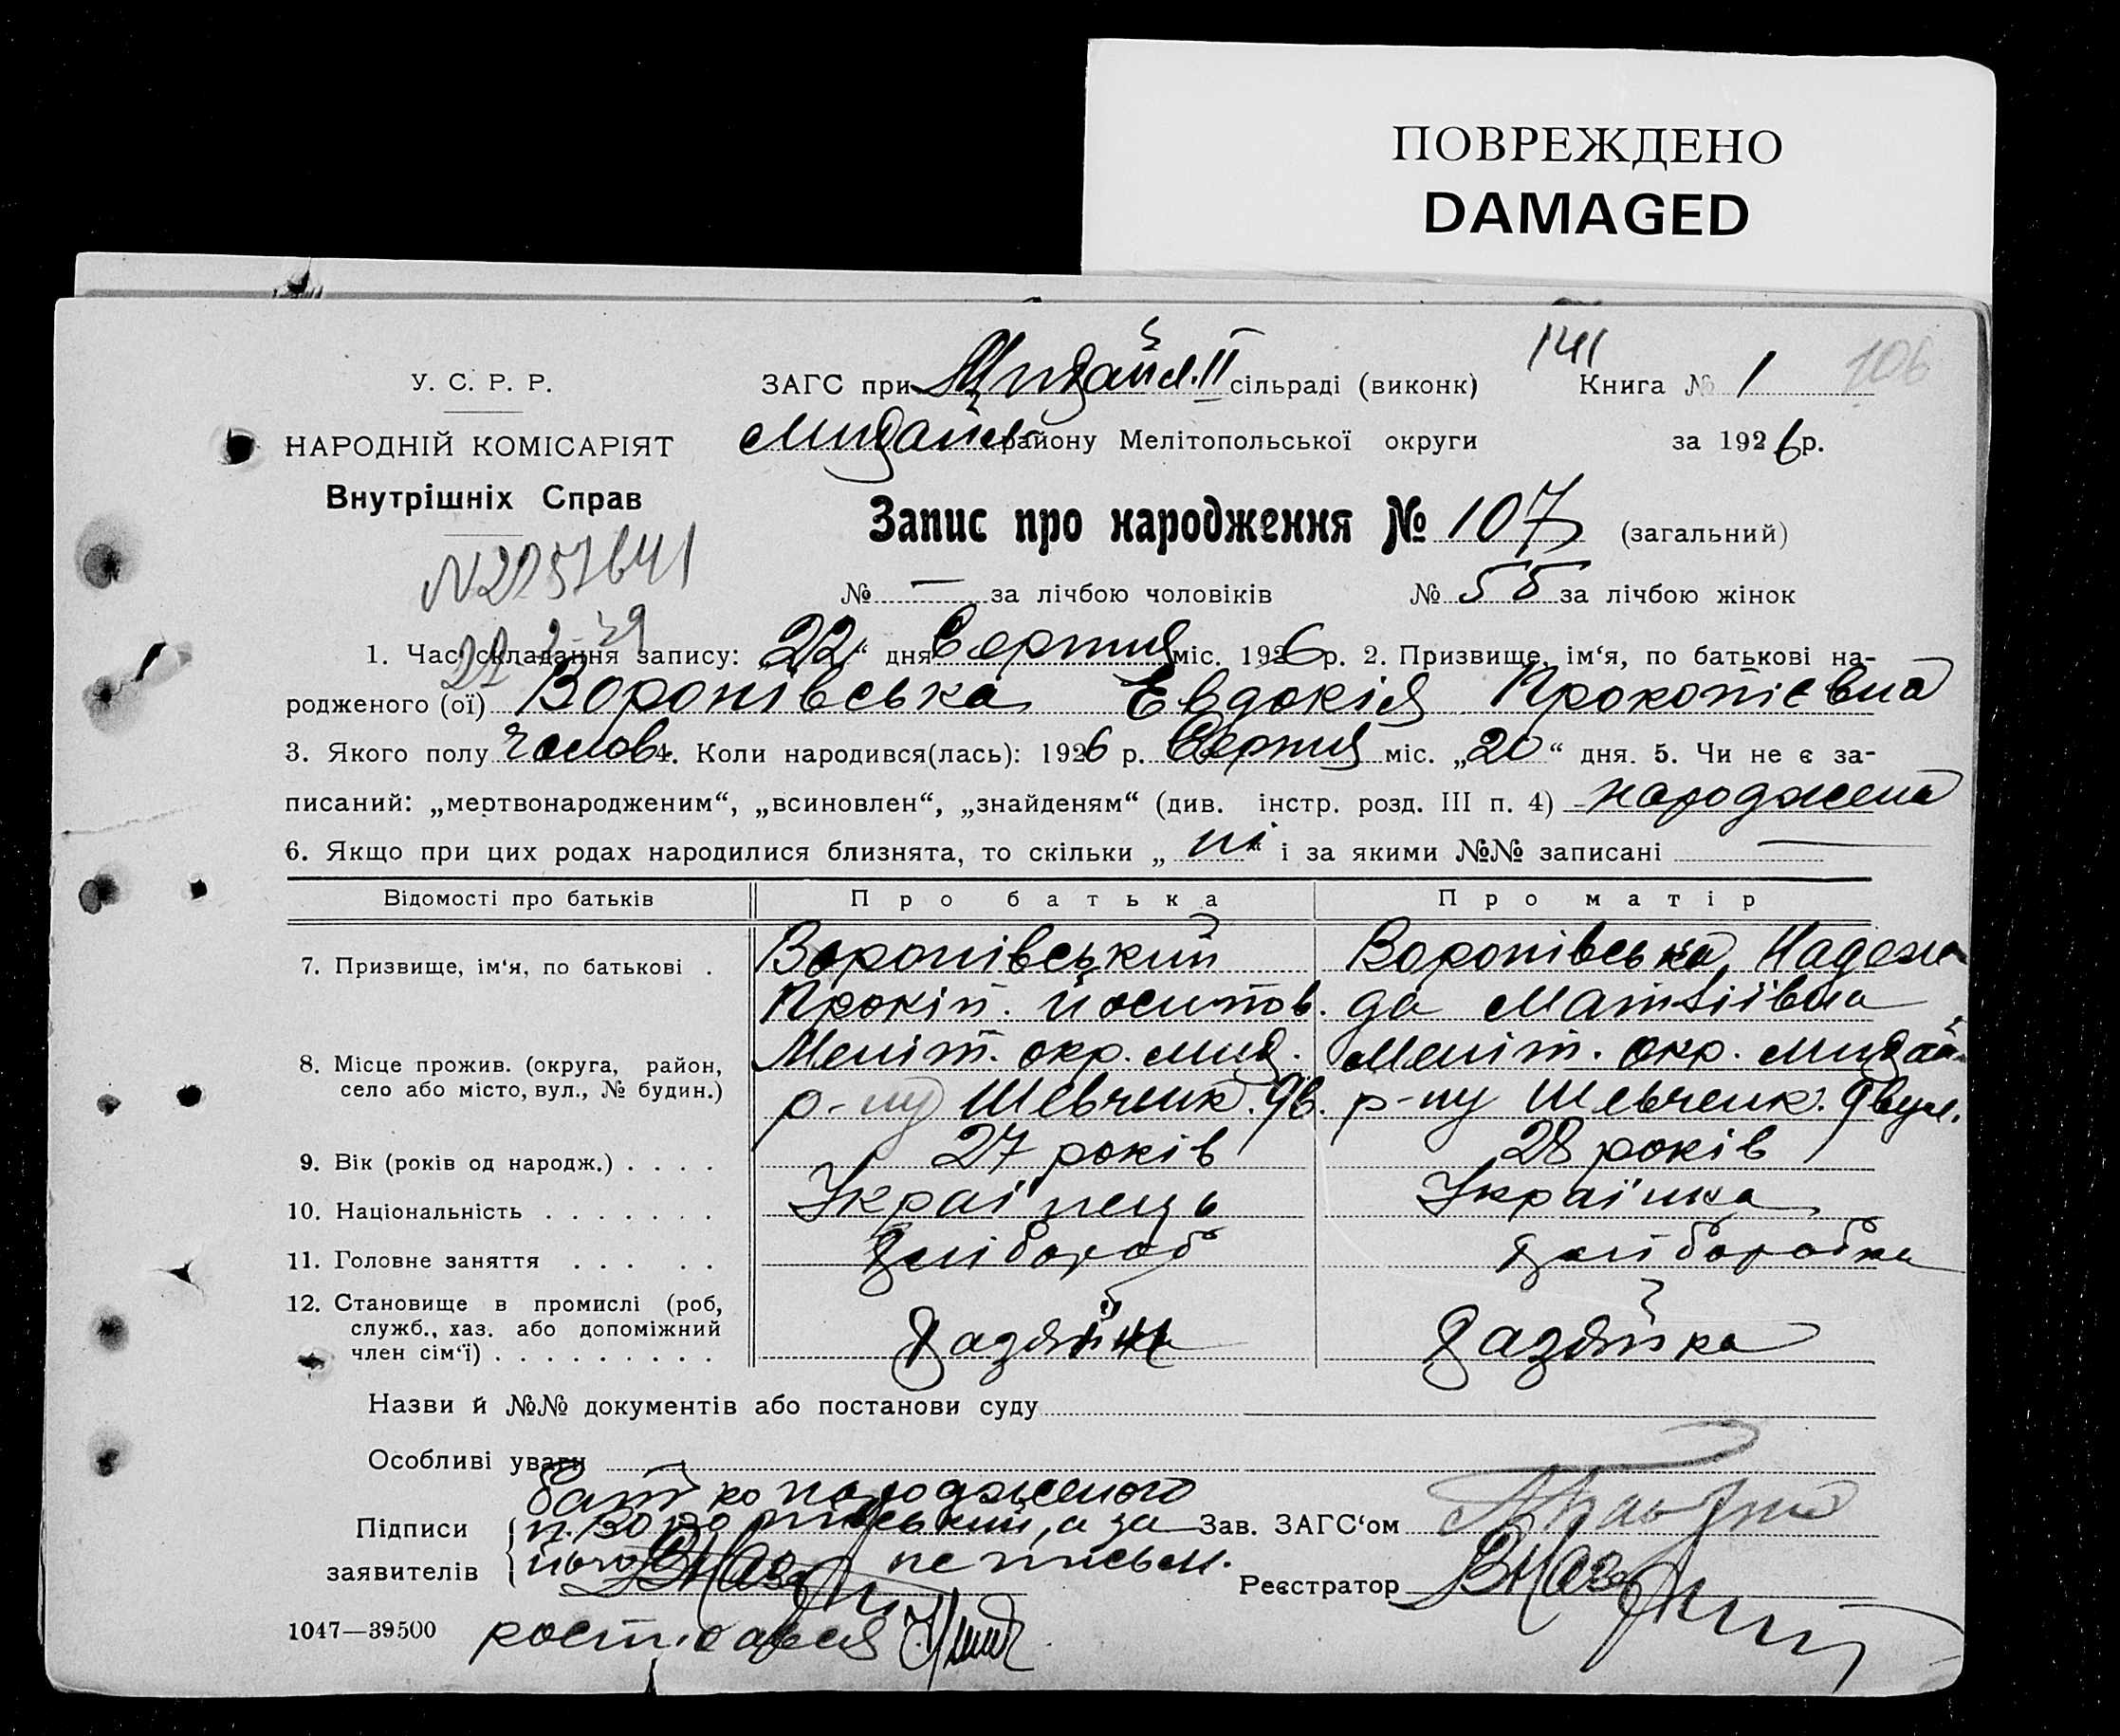 ПОВРЕЖДЕНО
DAMAGED
141
У. С. Р. Р. ЗАГС при ІІ сільраді (виконк) Книга № 1 106
НАРОДНІЙ КОМІСАРІЯТ району Мелітопольської округи за 1926 р.
Внутрішніх Справ
Запис про народження № 107 (загальний)
№ — за лічбою чоловіків № 55 за лічбою жінок
1. Час складання запису: „22“ дня Серпня міс. 1926 р. 2. Призвище, ім‘я, по батькові на-
родженого (ої) Воропівська Евдокія Прокопієвна
3. Якого полу чолов 4. Коли народився(лась): 1926 р. Серпня міс. „20“ дня. 5. Чи не є за-
писаний: „мертвонародженим“, „всиновлен“, „знайденям“ (див. інстр. розд. III п. 4) народжена
6. Якщо при цих родах народилися близнята, то скільки „ні“ і за якими №№ записані —
Відомості про батьків Про батька Про матір
7. Призвище, ім‘я, по батькові . Воропівський Воропівська Надеж
Прокіп. Йосипов. да Матвіївна
8. Місце прожив. (округа, район, Меліт. окр. Меліт. окр.
село або місто, вул., № будин.) р-ну Шевченк. р-ну Шевченк.
9. Вік (років од народж.) . . . . 27 років 28 років
10. Національність . . . . . . . Українець Українка
11. Головне заняття . . . . . Хлібороб Хліборобка
12. Становище в промислі (роб,
служб., хаз. або допоміжний Хазяїн Хазяйка
член сім‘ї) . . . . . . . . .
Назви й №№ документів або постанови суду
Особливі уваги
батько народженого
Підписи п. Воропівський, а за Зав. ЗАГС‘ом
заявителів його не письм. Реєстратор
1047—39500 росписався